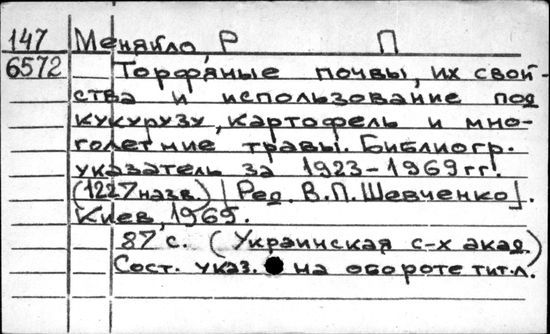 147 Меняйло, Р П
6572 Торфяные почвы, их свой-
ства и использование под
кукурузу, картофель и мно-
голетние травы. Библиогр.
указатель за 1923–1969 гг.
(1227 назв.) [Ред. В.П. Шевченко].
Киев, 1969.
87 с. (Украинская с-х акад.)
Сост. указ. на обороте тит.л.